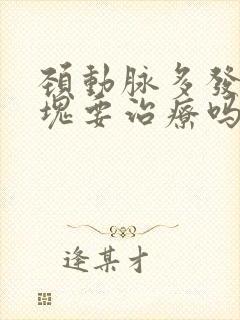 頚動脉多發
塊要治療嗎
逢某才